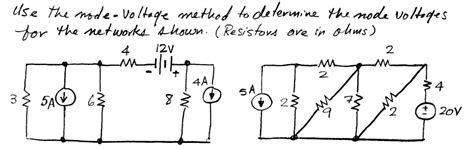 Use the node-voltage method to determine the node voltages
for the networks shown. (Resistors are in ohms)
4 12V 2
- + 2
3 5A 6 8 4A 5A 2 9 7 2 4
+ - 20V